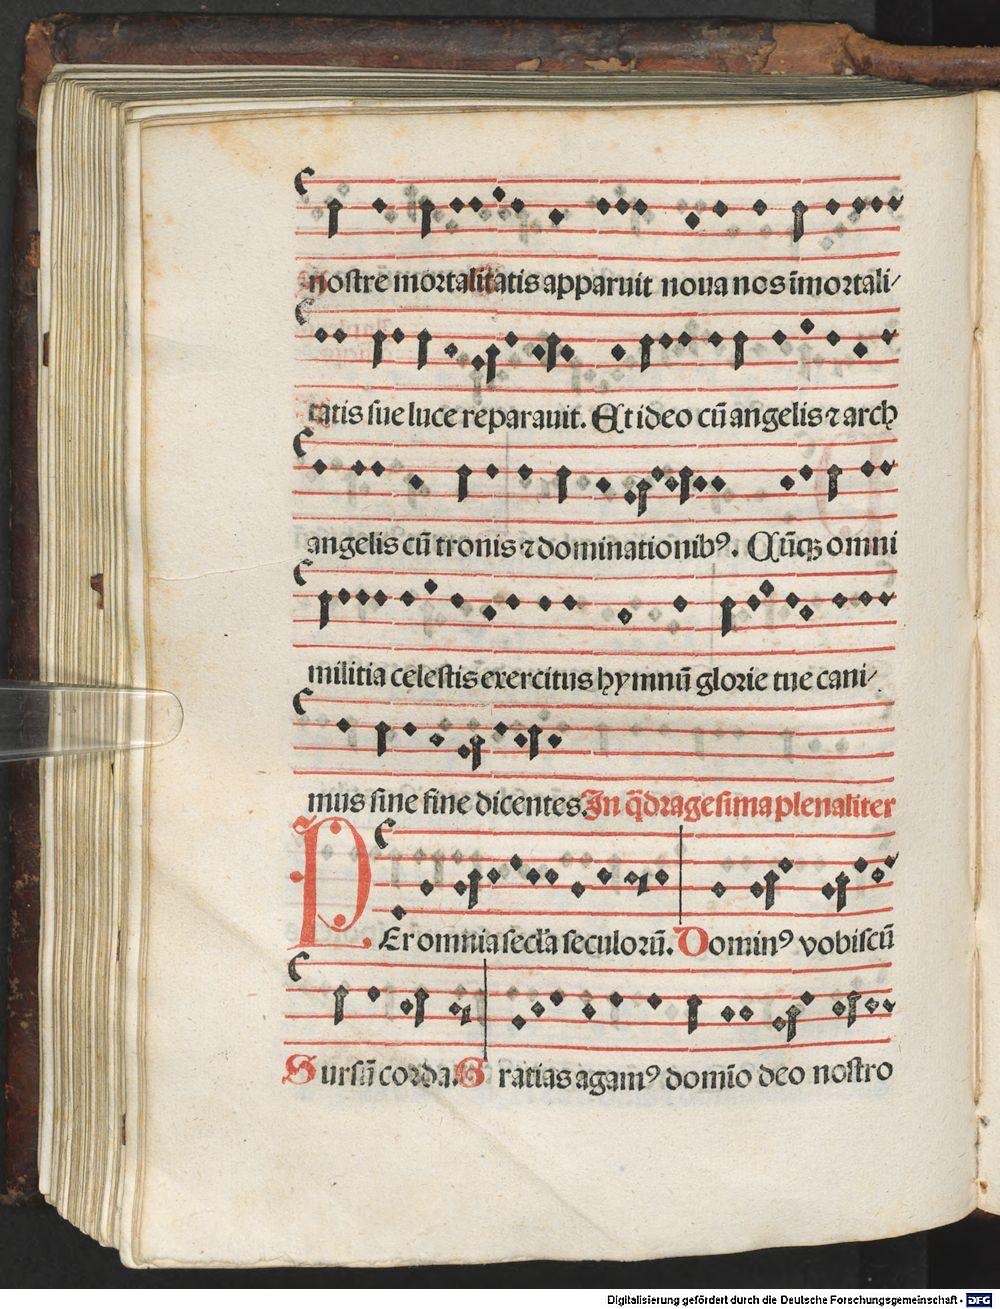 nostre mortalitatis apparuit noua nos īmortali/
tatis sue luce reparauit. Et ideo cū angelis ⁊ arch
angelis cū tronis ⁊ dominationibꝰ. Cūqꝫ omni
militia celestis exercitus hymnū glorie tue cani/
mus sine fine dicentes. In q̄dragesima plenaliter
PEr omnia secl'a seculorū. Dominꝰ vobiscū
Sursū corda. Gratias agamꝰ domīo deo nostro
Digitalisierung gefördert durch die Deutsche Forschungsgemeinschaft - DFG